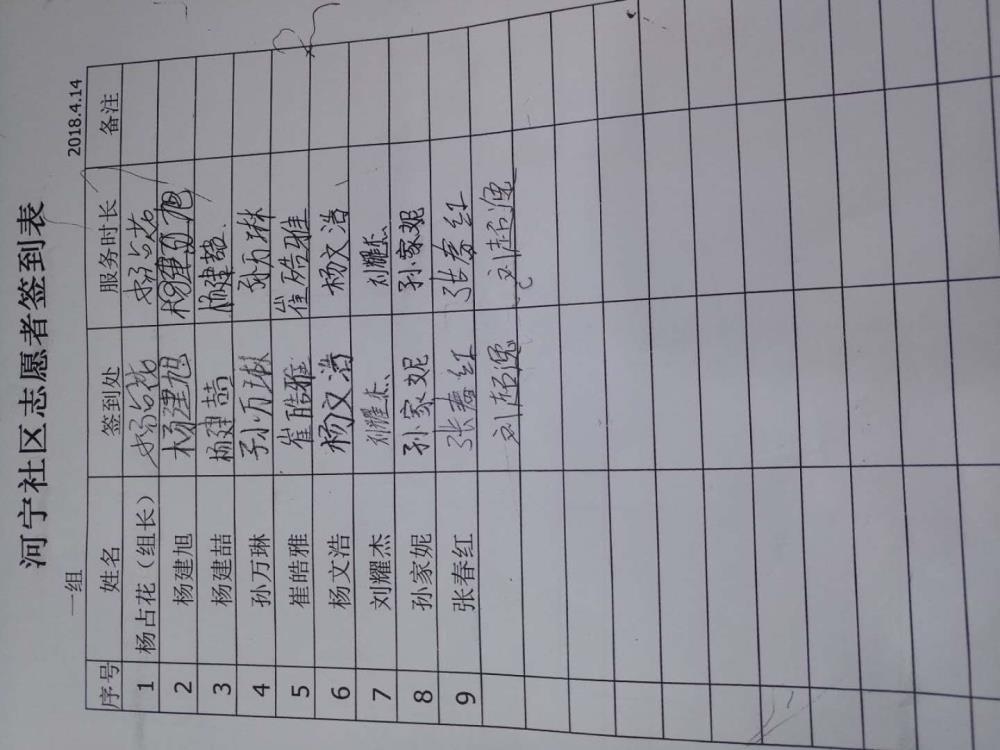 河宁社区志愿者签到表
一组 2018.4.14
序号 姓名 签到处 服务时长 备注
1 杨占花（组长） 杨占花 杨占花
2 杨建旭 杨建旭 杨建旭
3 杨建喆 杨建喆 杨建喆
4 孙万琳 孙万琳 孙万琳
5 崔皓雅 崔皓雅 崔皓雅
6 杨文浩 杨文浩 杨文浩
7 刘耀杰 刘耀杰 刘耀杰
8 孙家妮 孙家妮 孙家妮
9 张春红 张春红 张春红
刘超逸 刘超逸